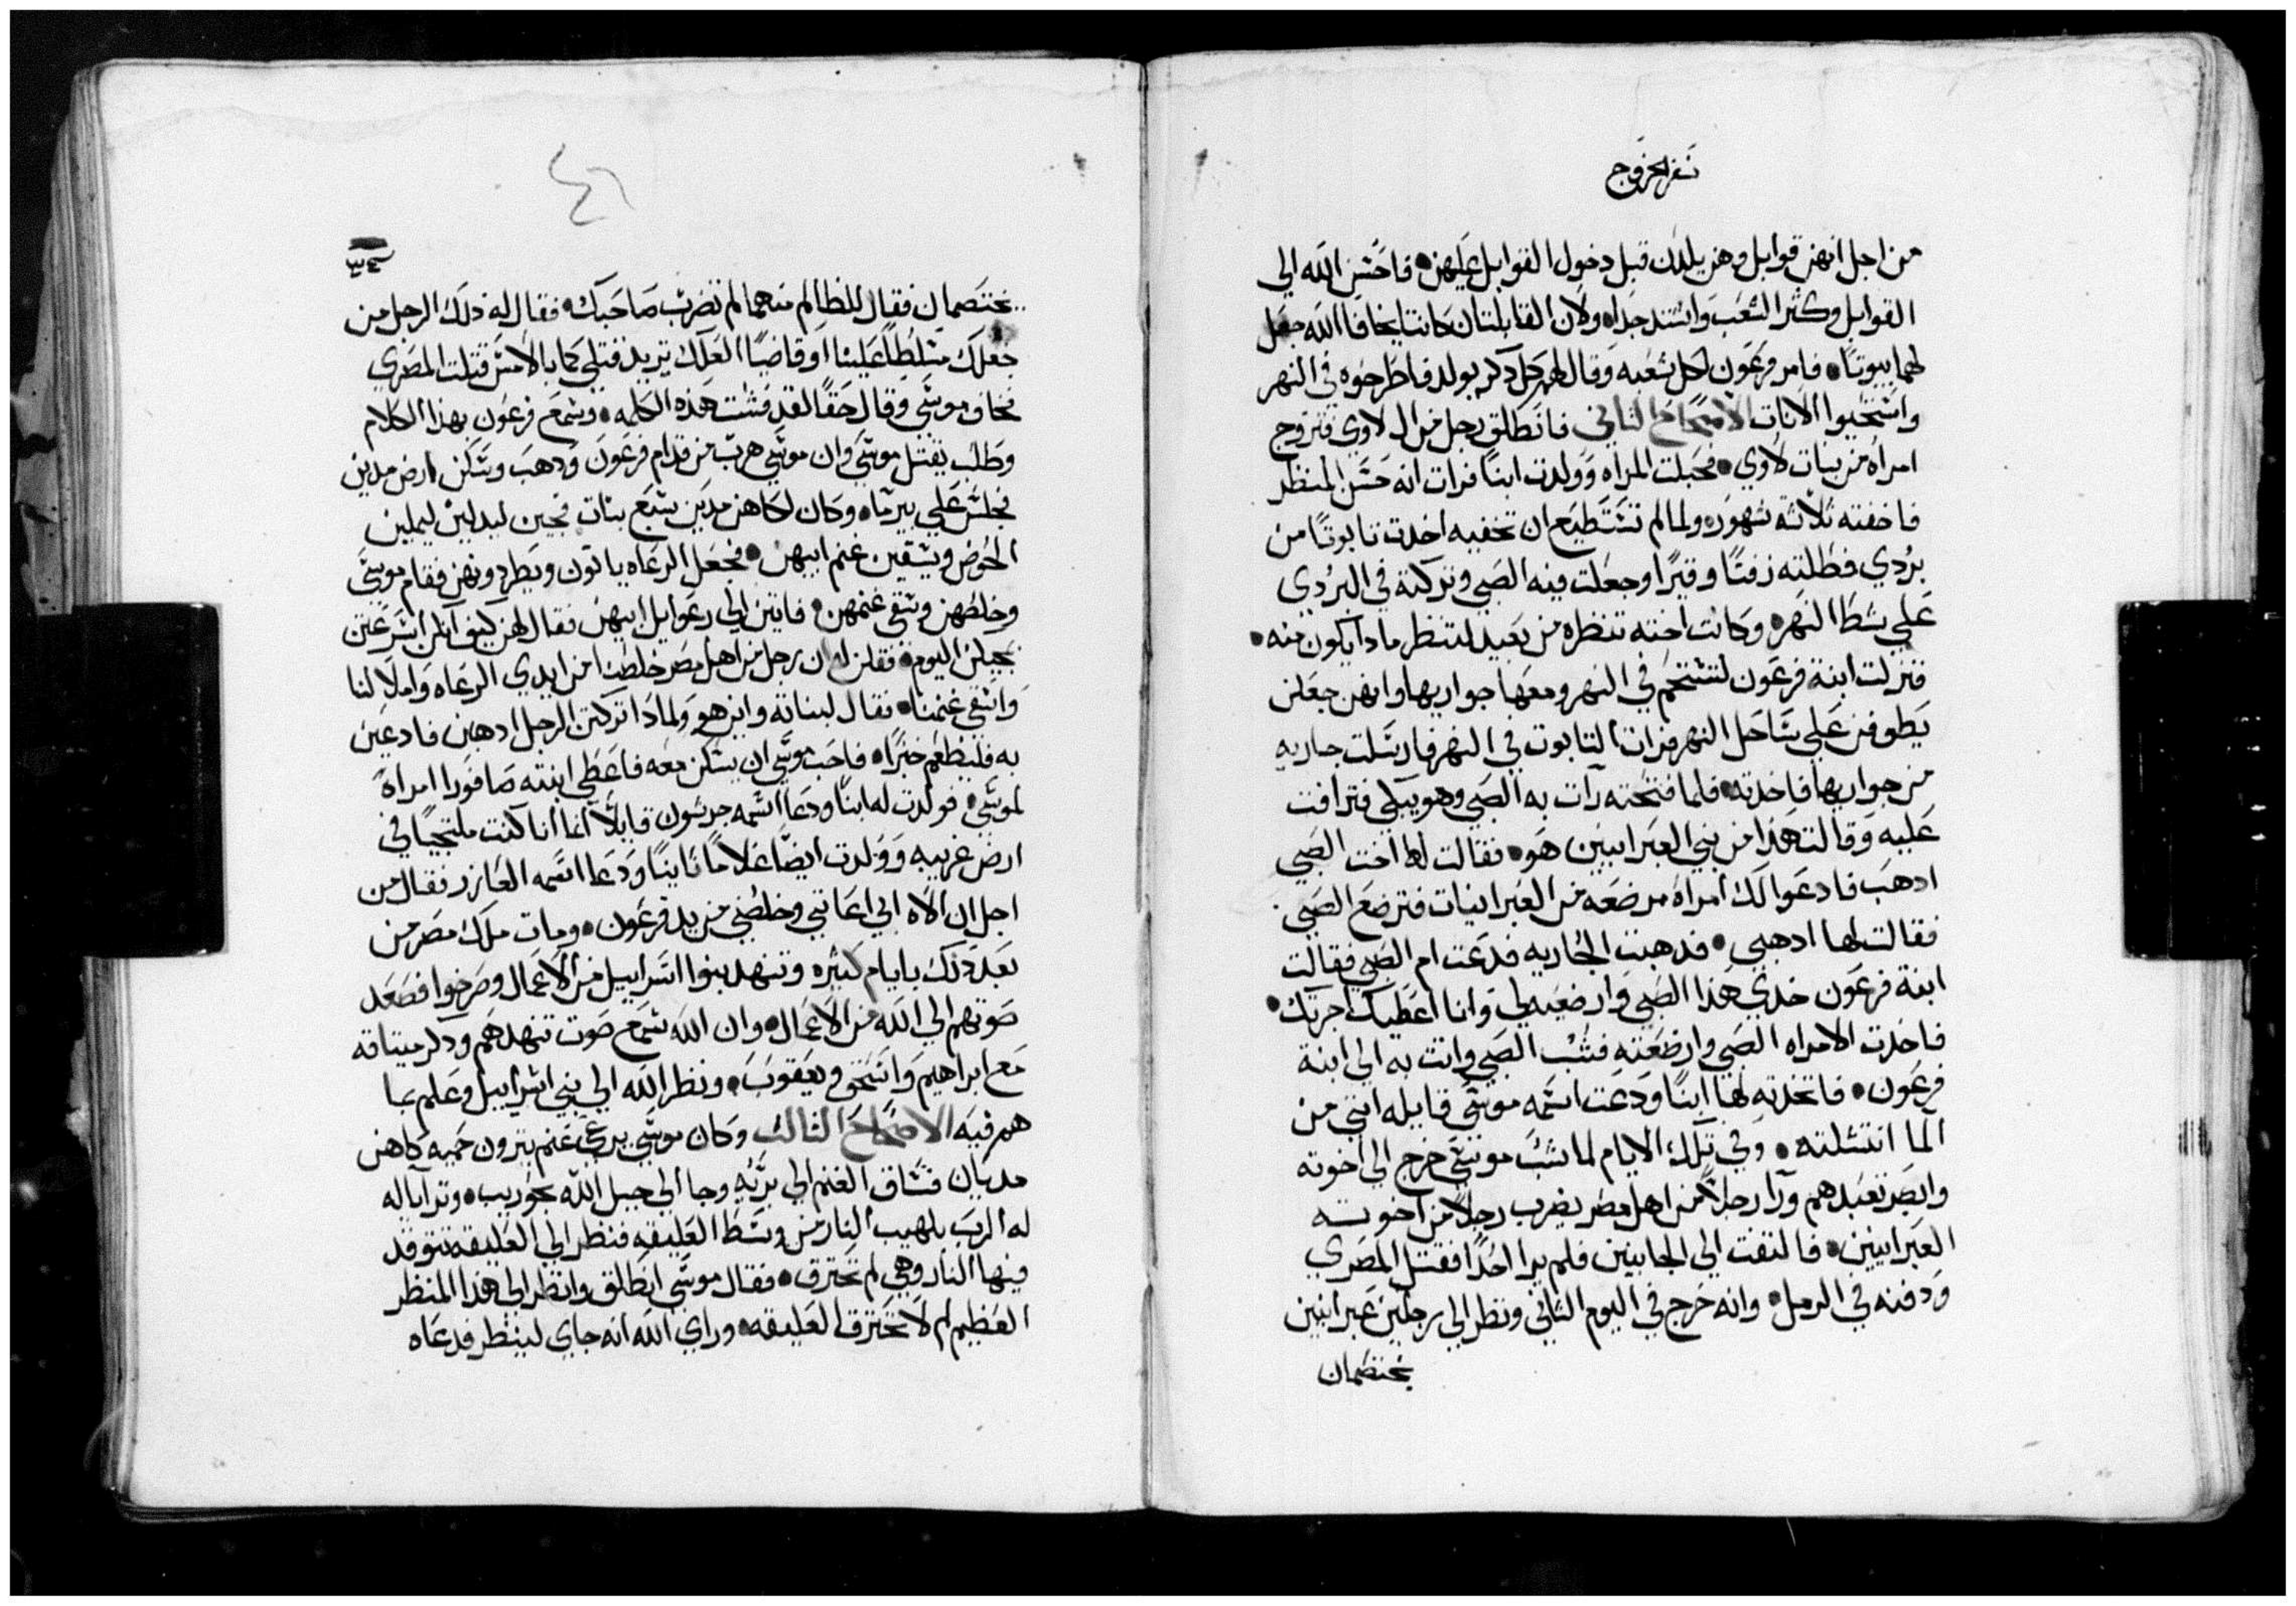 سفر الخروج
من اجل انهن قوابل وهن يلدن قبل دخول القوابل عليهن فاحسن الله الي
القوابل وكثر الشعب واشتد جدا ولان القابلتان كانتا يخافا الله جعل
لهما بيوتا فامر فرعون لكل شعبه وقال لهم كل دكر يولد فاطرحوه في النهر
واستحيوا الانات الاصحاح التاني فانطلق رجل من ال لاوي فتزوج
امراه من بنات لاوي فحبلت المراه وولدت ابنا فرات انه حسن المنظر
فاخفته تلاته شهور ولما لم تستطيع ان تخفيه اخدت تابوتا من
بردي فطلته زفتا وقيرا وجعلت فيه الصبي وتركته في البردي
علي شط النهر وكانت اخته تنظره من بعيد لتنظر مادا يكون منه
فنزلت ابنة فرعون لتستحم في النهر ومعها جواريها وانهن جعلن
يطوفن علي ساحل النهر فرات التابوت في النهر فارسلت جاريه
من جواريها فاخدته فلما فتحته رات به الصبي وهو يبكي فترافت
عليه وقالت هدا من بني العبرانيين هو فقالت لها اخت الصبي
ادهب فادعوا لك امراه مرضعه من العبرانيات فترضع الصبي
فقالت لها ادهبي فدهبت الجاريه فدعت ام الصبي فقالت
ابنة فرعون خدي هدا الصبي وارضعيه لي وانا اعطيك اجرتك
فاخدت الامراه الصبي وارضعته فشب الصبي واتت به الي ابنة
فرعون فاتخدته لها ابنا ودعت اسمه موسي قايله انني من
الما انتشلته وفي تلك الايام لما شب موسي خرج الي اخوته
وابصر تعبدهم ورا رجلا من اهل مصر يضرب رجلا من اخوته
العبرانيين فالتفت الي الجانبين فلم يرا احدا فقتل المصري
ودفنه في الرمل وانه خرج في اليوم التاني ونظر الي رجلين عبرانيين
يختصمان
٤٦
يختصمان فقال للظالم منهما لم تضرب صاحبك فقال له دلك الرجل من
جعلك مسلطا علينا او قاضيا العلك تريد قتلي كما بالامس قتلت المصري
فخاف موسي وقال حقا لقد فشت هده الكلمه وسمع فرعون بهدا الكلام
وطلب يقتل موسي وان موسي هرب من قدام فرعون ودهب وسكن ارض مدين
فجلس علي بير ما وكان لكاهن مدين سبع بنات فجين ليدلين ليملين
الحوض ويسقين غنم ابيهن فجعل الرعاه ياتون ويطردونهن فقام موسي
وخلصهن وسقي غنمهن فاتين الي رعوايل ابيهن فقال لهن كيف انكن اسرعتن
بمجيكن اليوم فقلن له ان رجل من اهل مصر خلصنا من ايدي الرعاه واملا لنا
واسقي غنمنا فقال لبناته واين هو ولمادا تركتن الرجل ادهبن فادعين
به فليطعم خبزا فاحب موسي ان يسكن معه فاعطي ابنته صافورا امراه
لموسي فولدت له ابنا ودعا اسمه جرشون قايلا انما انا كنت ملتجيا في
ارض غريبه وولدت ايضا غلاما تانيا ودعا اسمه العازر فقال من
اجل ان الاه ابي اعانني وخلصني من يد فرعون ومات ملك مصر من
بعد دلك بايام كتيره وتنهد بنوا اسراييل من الاعمال وصرخوا فصعد
صوتهم الي الله من الاعمال وان الله سمع صوت تنهدهم ودكر ميتاقه
مع ابراهيم واسحق ويعقوب ونظر الله الي بني اسراييل وعلم بما
هم فيه الاصحاح التالت وكان موسي يرعي غنم يترون حميه كاهن
مديان فساق الغنم الي بريه وجا الي جبل الله بحوريب وترايا له
له الرب بلهيب النار من وسط العليقه فنظر الي العليقه تتوقد
فيها النار وهي لم تحترق فقال موسي انطلق وانظر الي هدا المنظر
العظيم لم لا تحترق العليقه وراي الله انه جاي لينظر فدعاه